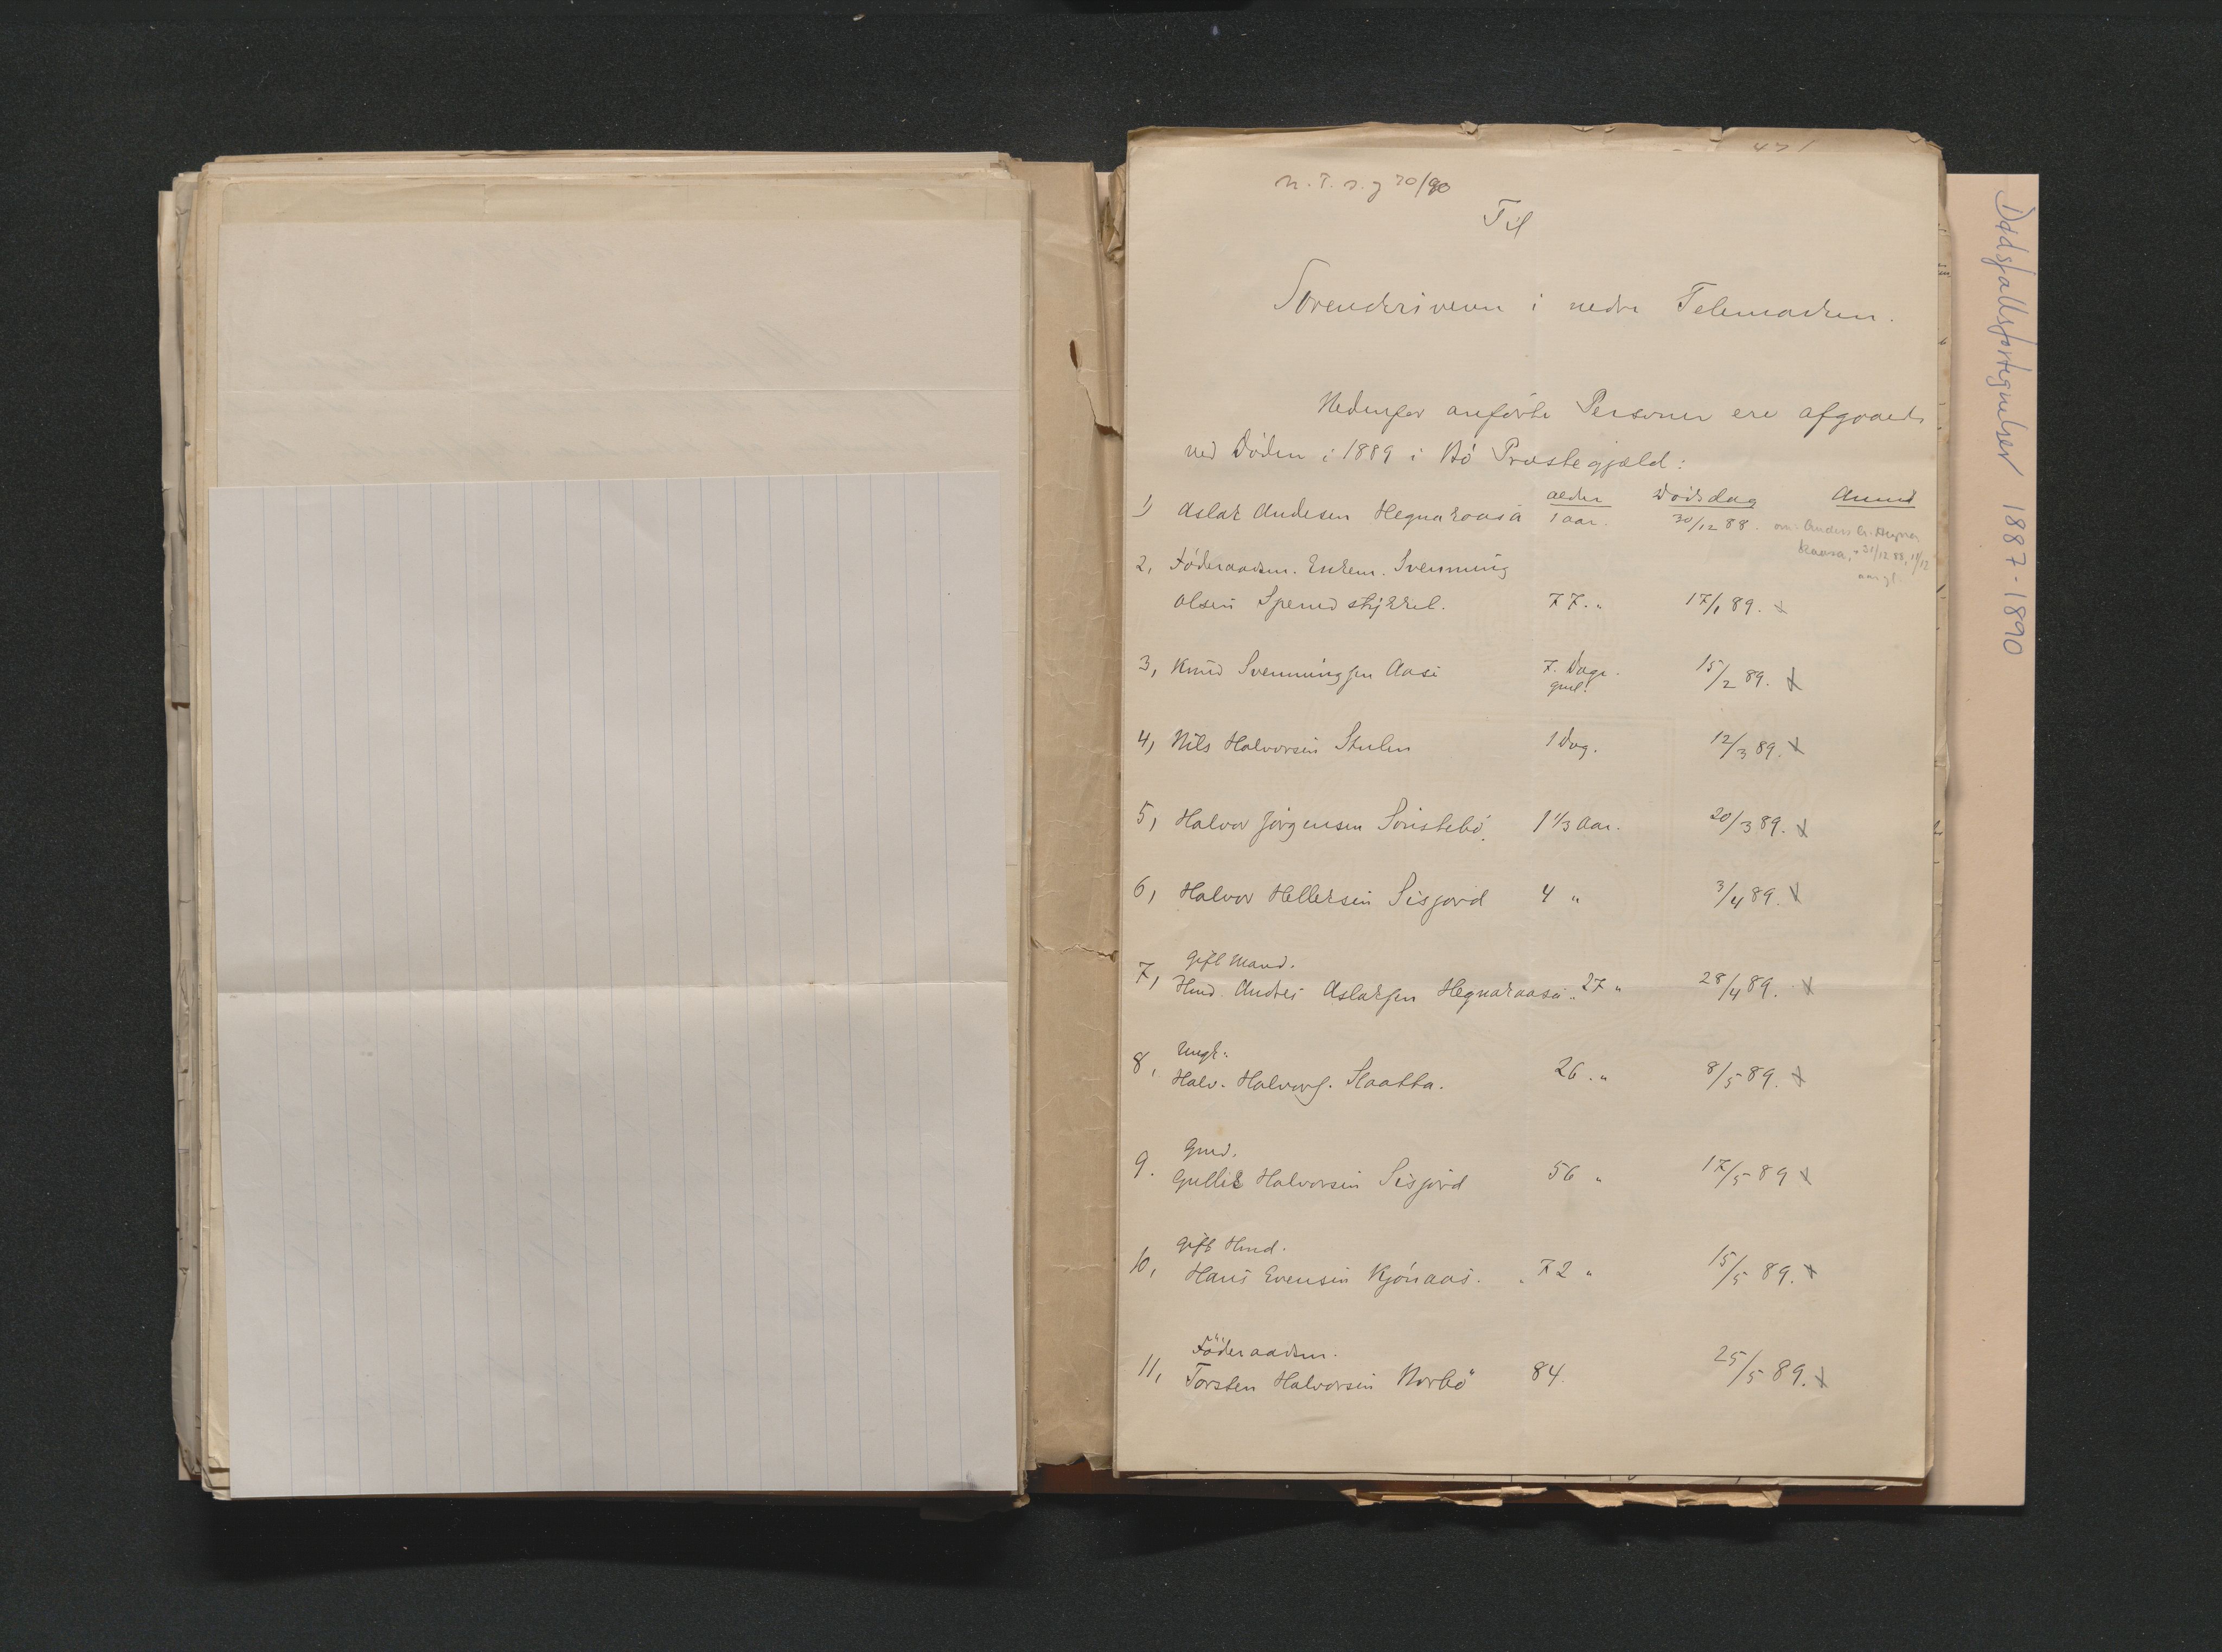 N. T. s. J 70/90
Til
Sorenskriveren i nedre Telemarken.
Nedenfor anførte Personer ere afgaaede
ved Døden i 1889 i Bø Præstegjæld:
alder Dødsdag Anmd
1) Aslak Andesen Hegnakaasa 1 aar. 30/12 88. om. Anders A. Hegna
kaasa, + 31/12 88, 11/12
aar gl.
2, Føderaadsm. Enkem. Svenning
Olsen Sperudstykket. 77. " 17/1 89. x
3, Knud Svenningsen Aasi 7. Dage. 15/2 89. x
gml.
4, Nils Halvorsen Stulen 1 Dag. 12/3 89. x
5, Halvor Jørgensen Sønstebø. 1 1/3 Aar. 20/3 89. x
6, Halvor Helleksen Sisjord 4 " 3/4 89. x
gift Mand.
7, Hmd. Andres Aslaksen Hegnakaasa. 27 " 28/4 89. x
Ungk:
8, Halv. Halvors. Slaatta. 26. " 8/5 89. x
Gmd.
9. Gullik Halvorsen Sisjord 56 " 17/5 89 x
gift Hmd.
10, Hans Evensen Kjønaas. 72 " 15/5 89. x
Føderaadsm.
11, Torsten Halvorsen Norbø 84. 25/5 89. x
Dødsfallsfortegnelser 1887-1890